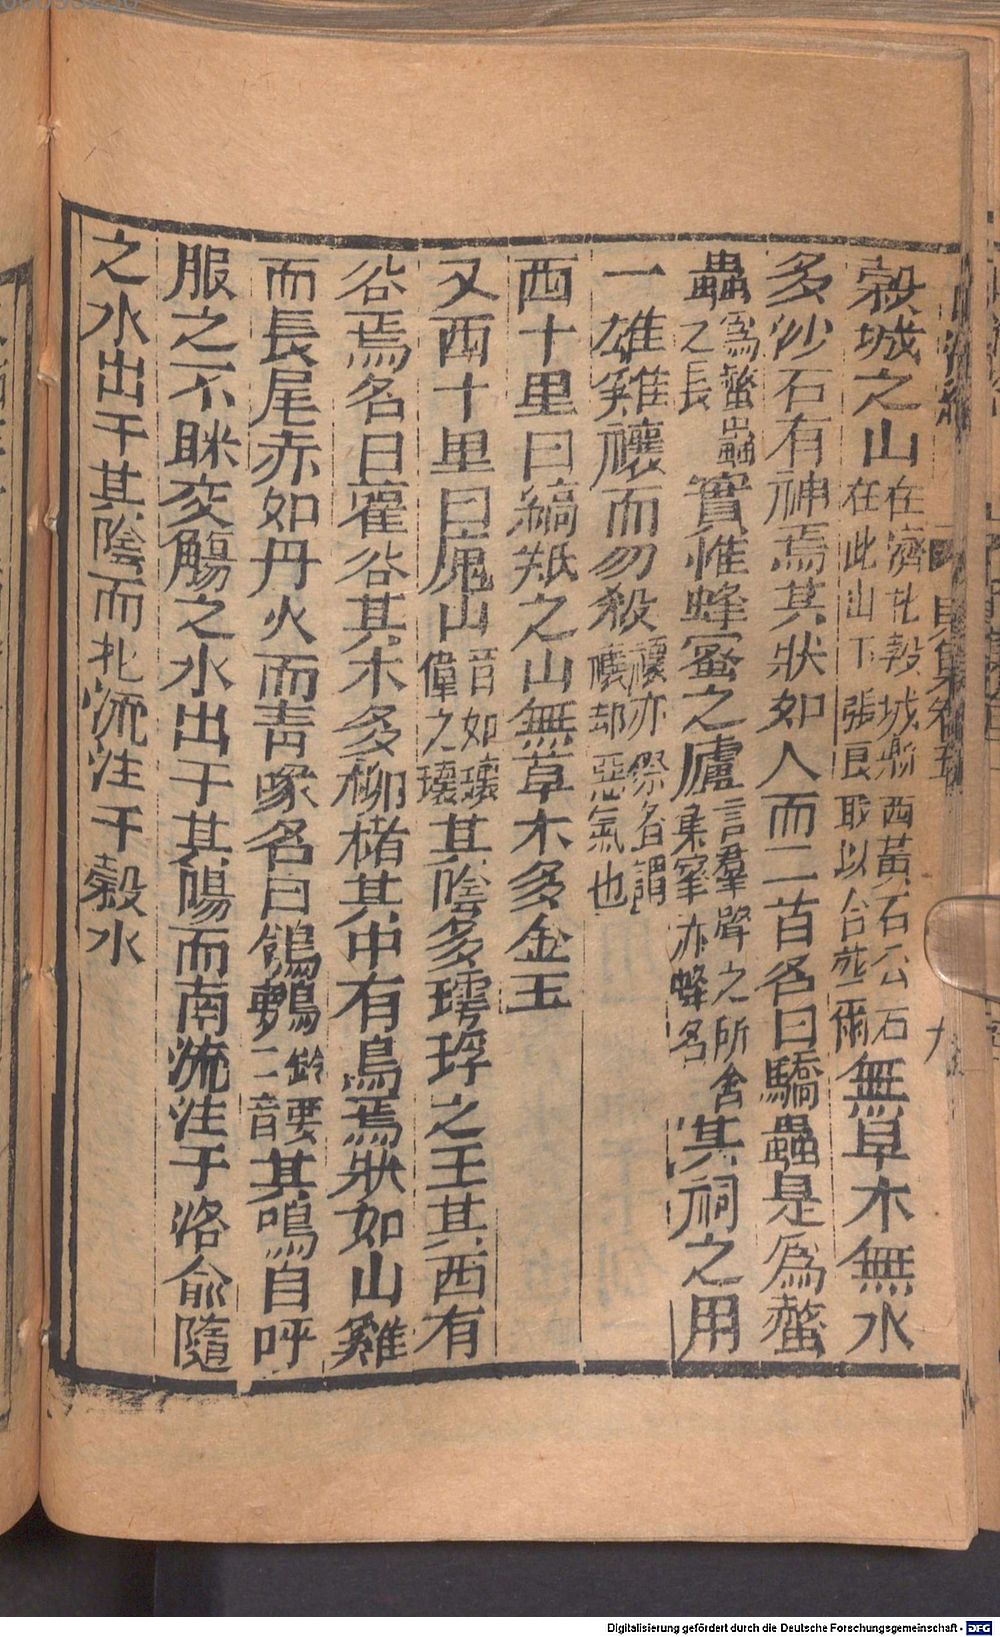 穀城之山在濟北穀城縣西黃石公石在此山下張良取以合葬爾無草木無水
多沙石有神焉其狀如人而二首名曰驕蟲是爲螫
蟲爲螫蟲之長實惟蜂蜜之廬言羣聲之所舍集蜜亦蜂名其祠之用
一雄雞禳而勿殺禳亦祭名謂禳却惡氣也
西十里曰縞羝之山無草木多金玉
又西十里曰廆山音如瓌偉之瓌其陰多㻬琈之玉其西有
谷焉名曰雚谷其木多柳楮其中有鳥焉狀如山雞
而長尾赤如丹火而青喙名曰鴒䳩鈴要二音其鳴自呼
服之不眯交觴之水出于其陽而南流注于洛俞隨
之水出于其陰而北流注于穀水
山海經
九
Digitalisierung gefördert durch die Deutsche Forschungsgemeinschaft - DFG